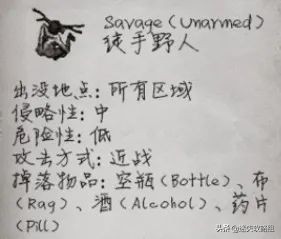 Savage (Unarmed)
徒手野人
出没地点：所有区域
侵略性：中
危险性：低
攻击方式：近战
掉落物品：空瓶(Bottle)、布
(Rag)、酒(Alcohol)、药片
(Pill)